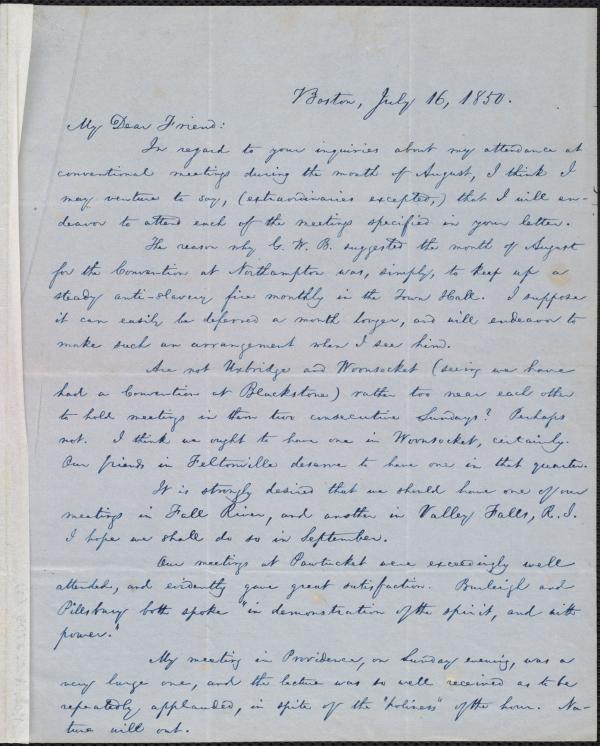 Boston, July 16, 1850.
My Dear Friend:
In regard to your inquiries about my attendance at
conventional meetings during the month of August, I think I
may venture to say, (extraordinaries excepted,) that I will en-
deavor to attend each of the meetings specified in your letter.
The reason why G. W. B. suggested the month of August
for the Convention at Northampton was, simply, to keep up a
steady anti-slavery fire monthly in the Town Hall. I suppose
it can easily be deferred a month longer, and will endeavor to
make such an arrangement when I see him.
Are not Uxbridge and Woonsocket (seeing we have
had a Convention at Blackstone) rather too near each other
to hold meetings in them two consecutive Sundays? Perhaps
not. I think we ought to have one in Woonsocket, certainly.
Our friends in Feltonville deserve to have one in that quarter.
It is strongly desired that we should have one of our
meetings in Fall River, and another in Valley Falls, R.I.
I hope we shall do so in September.
Our meetings at Pawtucket were exceedingly well
attended, and evidently gave great satisfaction. Burleigh and
Pillsbury both spoke "in demonstration of the spirit, and with
power."
My meeting in Providence, on Sunday evening, was a
very large one, and the lecture was so well received as to be
repeatedly applauded, in spite of the "holiness" of the hour. Na-
ture will out.